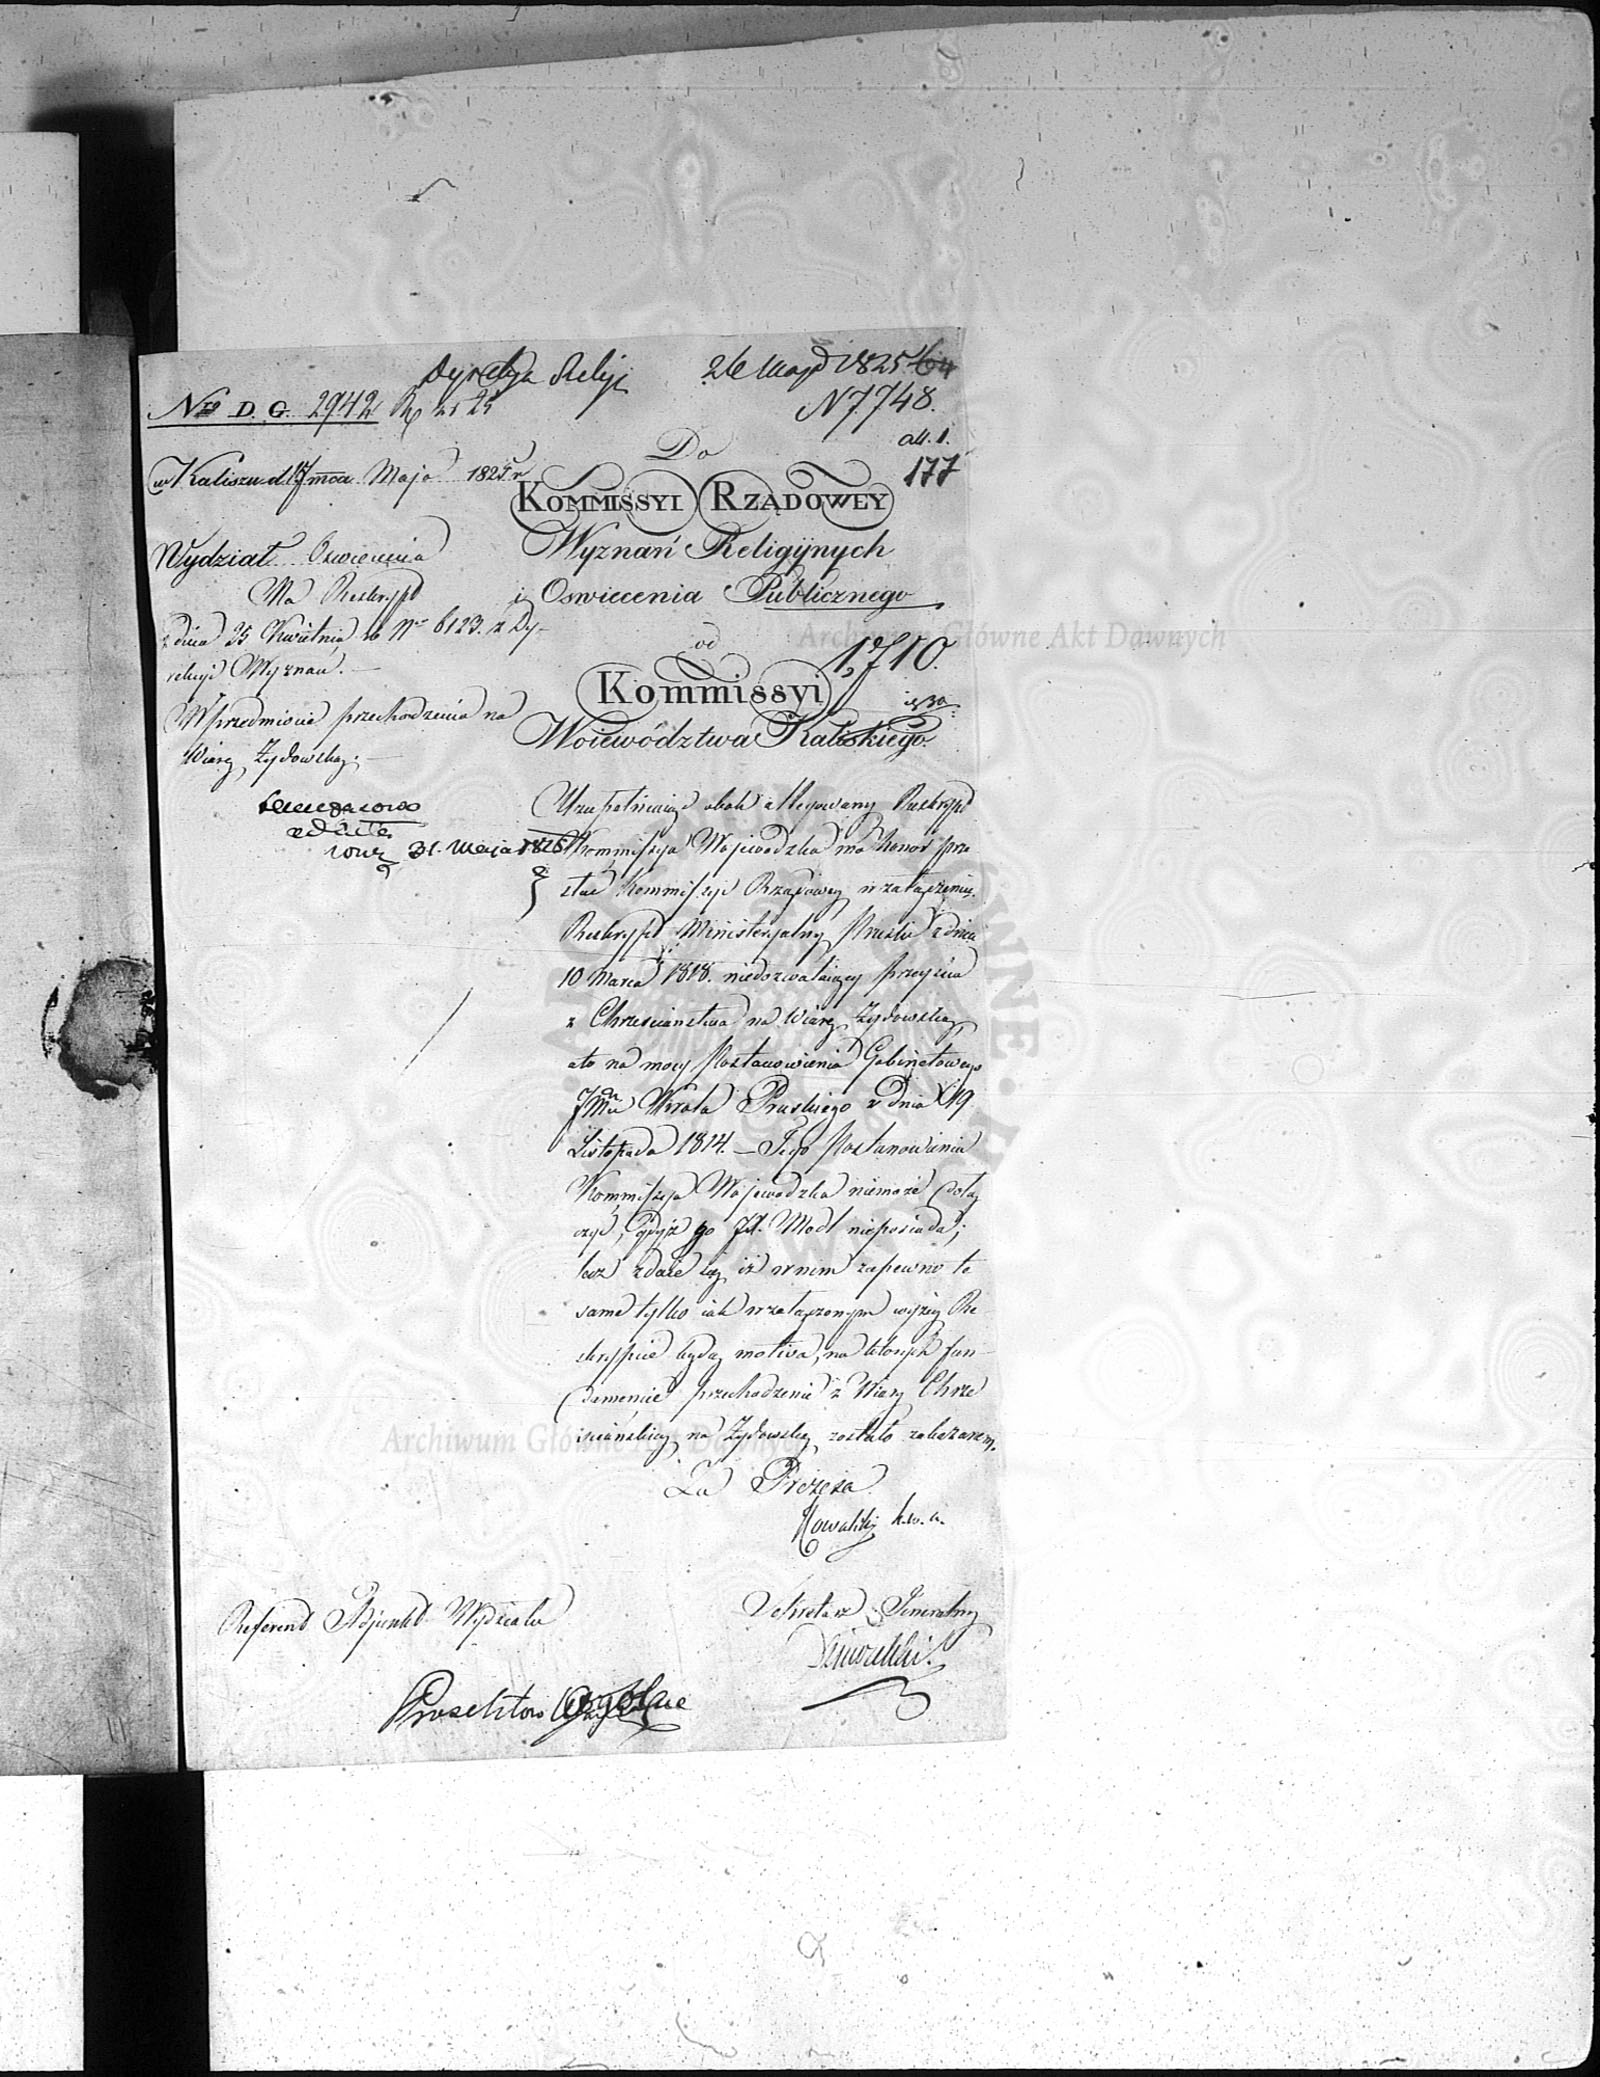 Dyrekcya Religij 26 Maja 1825 64
Nro D. G. 2942
N 7748.
all. 1.
177
w Kaliszu d. 17 mca Maja 1825 r
Do
KOMMISSYI RZĄDOWEY
Wyznań Religijnych
i Oswiecenia Publicznego
od
1,710.
Kommissyi
Woiewództwa Kaliskiego.
Wydział Oswiecenia
Na Reskrypt
z dnia 25 Kwietnia rb Nro 6123. z Dy-
rekcyi Wyznań. —
W przedmiocie przechodzenia na
Wiarę Żydowską. —
31. Maja 1825
Uzupełniaiąc obok allegowany Reskrypt
Kommissya Wojewodzka ma honor prze
słać Kommissyi Rządowey w załączeniu
Reskrypt Ministeryalny Pruski z dnia
10 Marca 1818. niedozwalaiący przeyscia
z Chrzescianstwa na Wiarę Żydowską,
a to na mocy Postanowienia Gabinetowego
Króla Pruskiego z dnia 19
Listopada 1814. — Tego Postanowienia
Kommissya Wojewodzka niemoże dołą
czyć, gdyż go nieposiada;
lecz zdaie się, iż w nim zapewne te
same tylko iak w załączonym wyżey Re
skrypcie będą motiva, na których fun-
damencie przechodzenie z Wiary Chrze
sciańskiey na Żydowską zostało zakazanem.
Za Prezesa
Kowalski k.w.
Referend Adjunkt Wydziału
Sekretarz Generalny
Archiwum Główne Akt Dawnych
Archiwum Główne Akt Dawnych